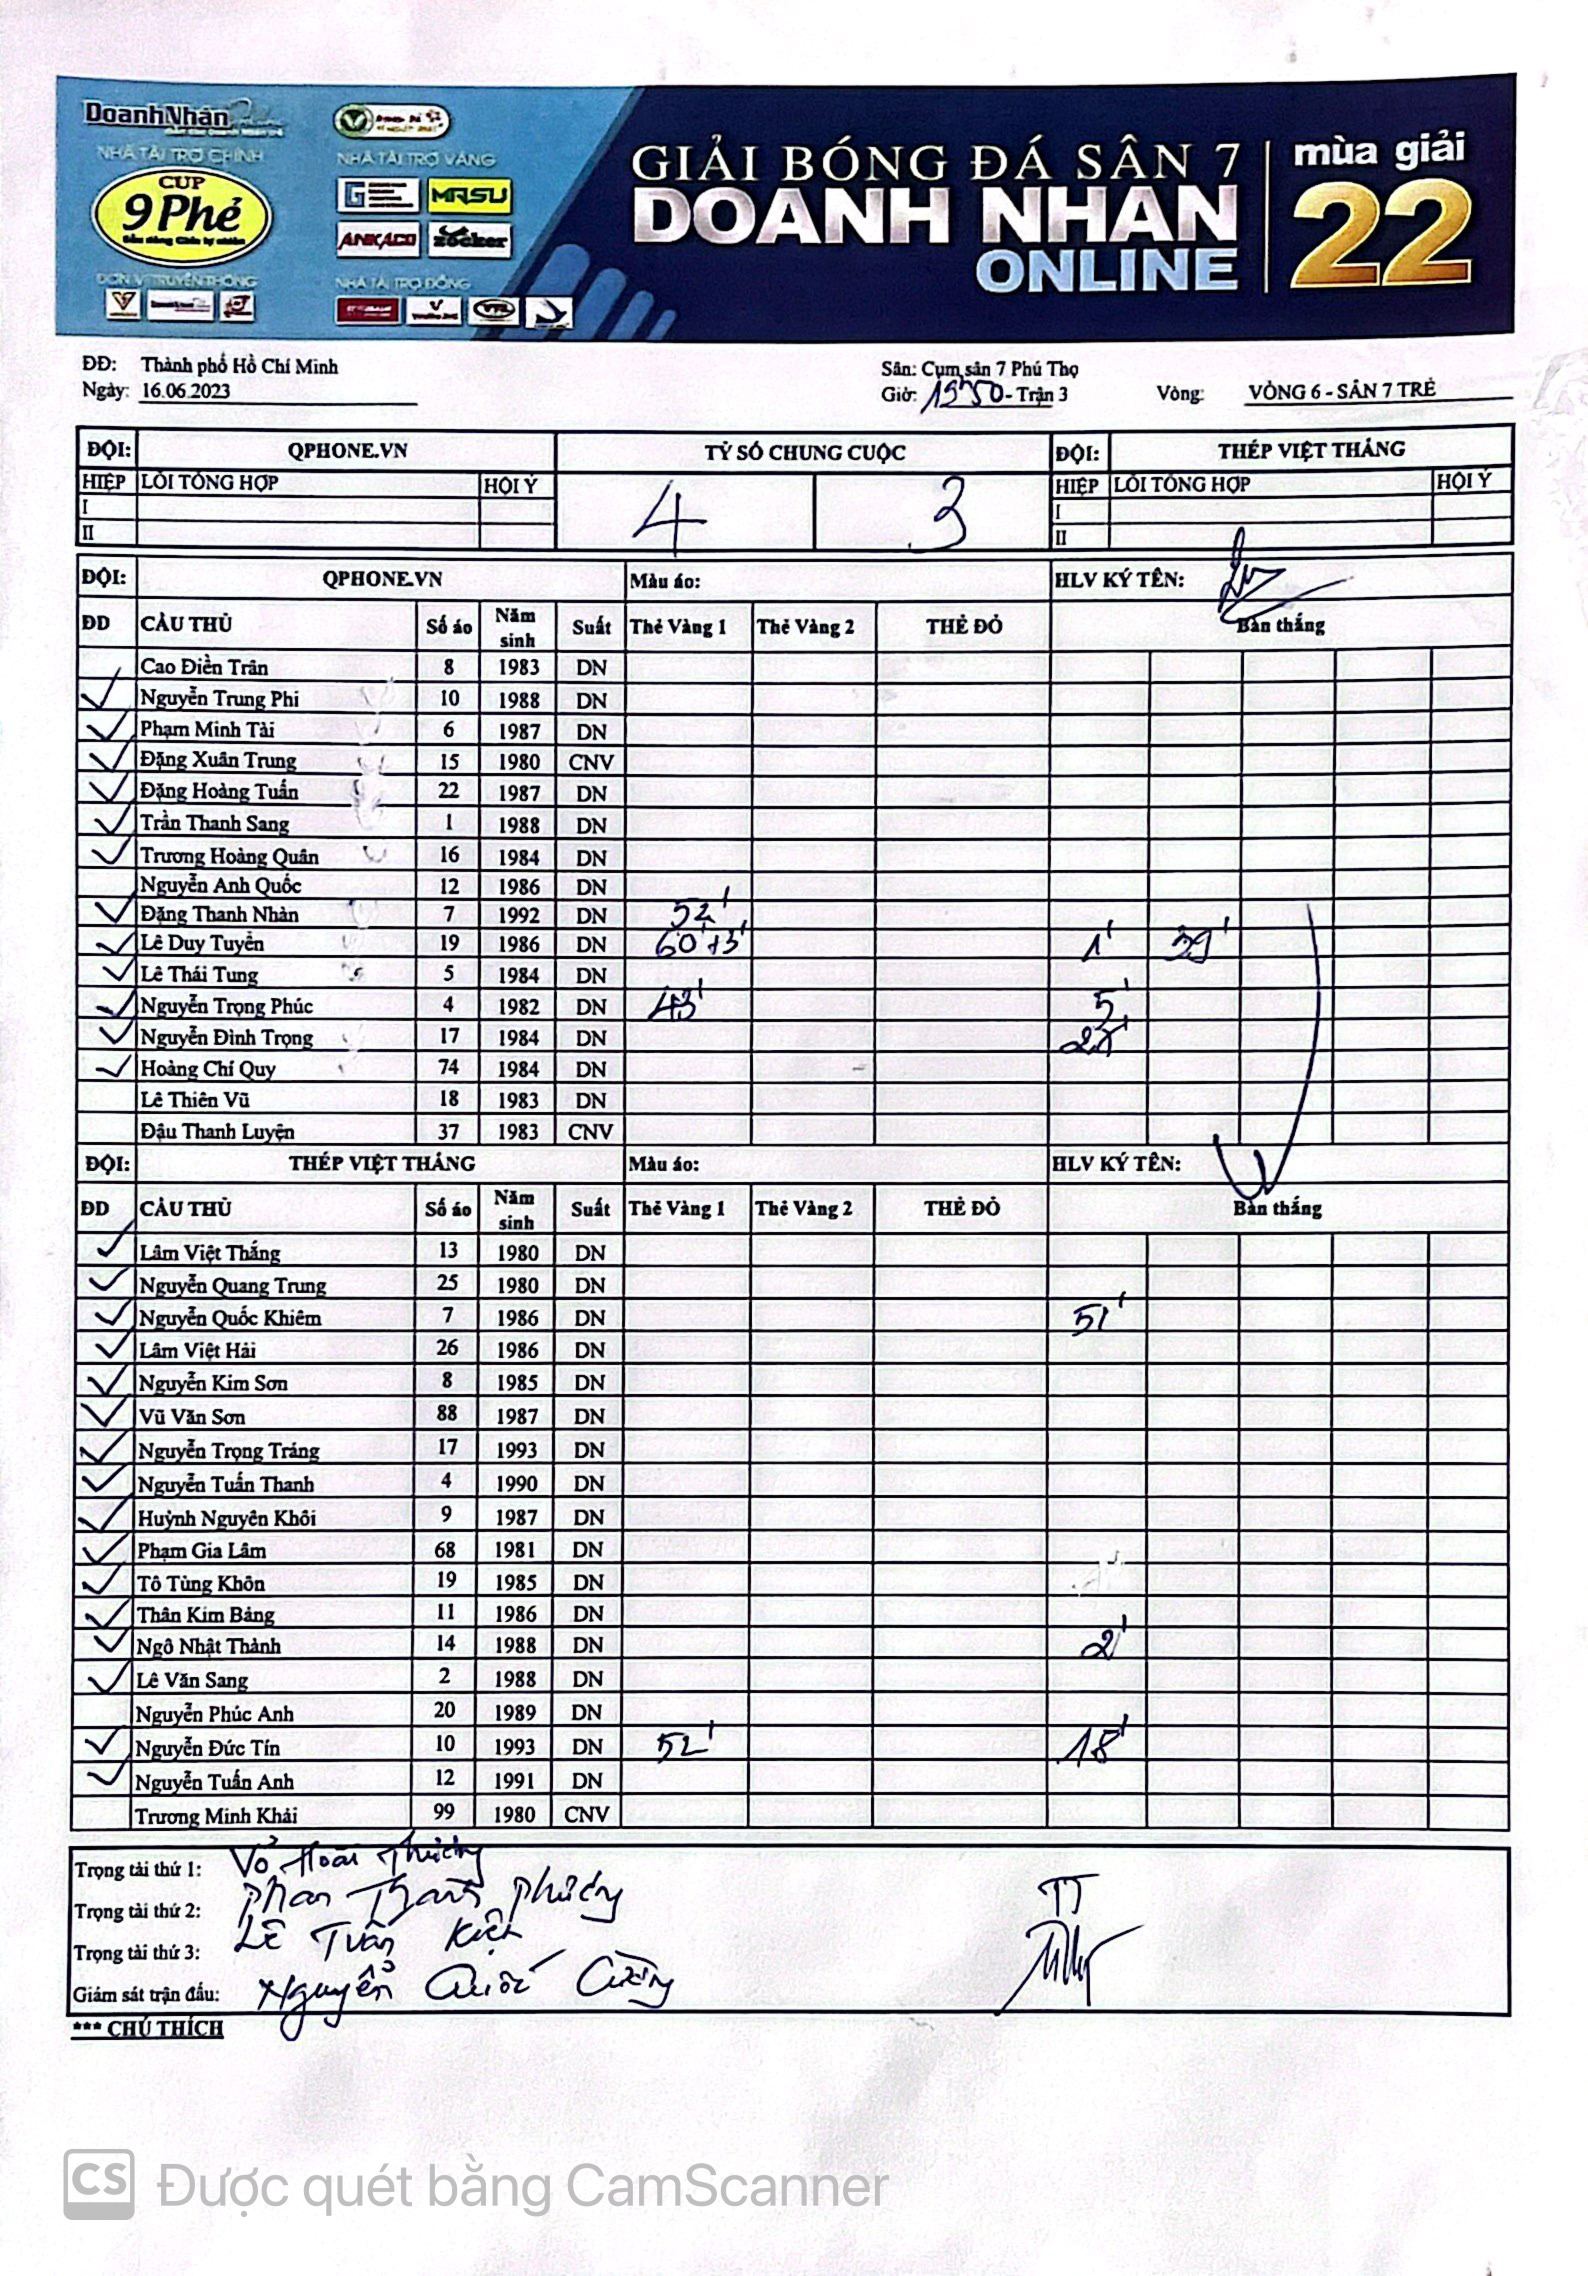 DoanhNhân
NHÀ TÀI TRỢ CHÍNH
NHÀ TÀI TRỢ VÀNG
CUP
9 Phẻ
MRSU
ANKACO
zocker
ĐƠN VỊ TRUYỀN THÔNG
NHÀ TÀI TRỢ ĐỒNG
GIẢI BÓNG ĐÁ SÂN 7
DOANH NHÂN
ONLINE
mùa giải
22
ĐĐ: Thành phố Hồ Chí Minh
Sân: Cụm sân 7 Phú Thọ
Ngày: 16.06.2023
Giờ: 19h50 - Trận 3
Vòng: VÒNG 6 - SÂN 7 TRẺ
ĐỘI: QPHONE.VN TỶ SỐ CHUNG CUỘC ĐỘI: THÉP VIỆT THẮNG
HIỆP LỖI TỔNG HỢP HỘI Ý 4 3 HIỆP LỖI TỔNG HỢP HỘI Ý
I I
II II
ĐỘI: QPHONE.VN Màu áo: HLV KÝ TÊN:
ĐD CẦU THỦ Số áo Năm sinh Suất Thẻ Vàng 1 Thẻ Vàng 2 THẺ ĐỎ Bàn thắng
Cao Điền Trân 8 1983 DN
Nguyễn Trung Phi 10 1988 DN
Phạm Minh Tài 6 1987 DN
Đặng Xuân Trung 15 1980 CNV
Đặng Hoàng Tuấn 22 1987 DN
Trần Thanh Sang 1 1988 DN
Trương Hoàng Quân 16 1984 DN
Nguyễn Anh Quốc 12 1986 DN
Đặng Thanh Nhàn 7 1992 DN 52'
Lê Duy Tuyền 19 1986 DN 60'+3' 1' 39'
Lê Thái Tung 5 1984 DN
Nguyễn Trọng Phúc 4 1982 DN 43' 5'
Nguyễn Đình Trọng 17 1984 DN 28'
Hoàng Chí Quy 74 1984 DN
Lê Thiên Vũ 18 1983 DN
Đậu Thanh Luyện 37 1983 CNV
ĐỘI: THÉP VIỆT THẮNG Màu áo: HLV KÝ TÊN:
ĐD CẦU THỦ Số áo Năm sinh Suất Thẻ Vàng 1 Thẻ Vàng 2 THẺ ĐỎ Bàn thắng
Lâm Việt Thắng 13 1980 DN
Nguyễn Quang Trung 25 1980 DN
Nguyễn Quốc Khiêm 7 1986 DN 51'
Lâm Việt Hải 26 1986 DN
Nguyễn Kim Sơn 8 1985 DN
Vũ Văn Sơn 88 1987 DN
Nguyễn Trọng Tráng 17 1993 DN
Nguyễn Tuấn Thanh 4 1990 DN
Huỳnh Nguyên Khôi 9 1987 DN
Phạm Gia Lâm 68 1981 DN
Tô Tùng Khôn 19 1985 DN
Thân Kim Bảng 11 1986 DN
Ngô Nhật Thành 14 1988 DN 2'
Lê Văn Sang 2 1988 DN
Nguyễn Phúc Anh 20 1989 DN
Nguyễn Đức Tín 10 1993 DN 52' 18'
Nguyễn Tuấn Anh 12 1991 DN
Trương Minh Khải 99 1980 CNV
Trọng tài thứ 1: Võ Hoài Thương
Trọng tài thứ 2: Phan Thanh Phương
Trọng tài thứ 3: Lê Tuấn Kiệt
Giám sát trận đấu: Nguyễn Quốc Cường
TT
*** CHÚ THÍCH
CS Được quét bằng CamScanner